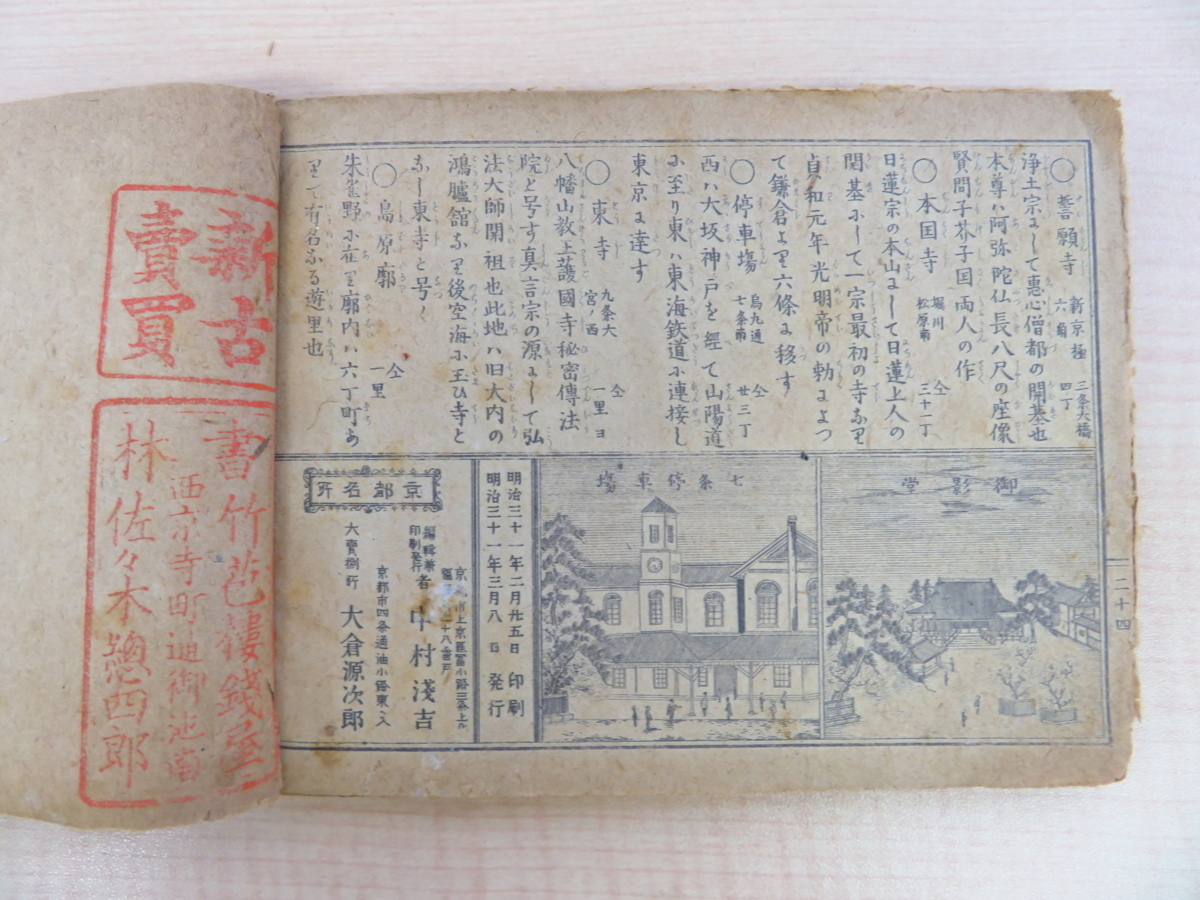 ○誓願寺 新京極六角 三条大橋四丁
浄土宗にして惠心僧都の開基也
本尊ハ阿弥陀仏長八尺の座像
賢問子芥子国両人の作
○本国寺 堀川松原南 仝三十一丁
日蓮宗の本山にして日蓮上人の
開基にして一宗最初の寺なり
貞和元年光明帝の勅によつ
て鎌倉より六條に移す
○停車場 烏丸通七条南 仝廿三丁
西ハ大坂神戸を経て山陽道
に至り東ハ東海鉄道に連接し
東京に達す
○東寺 九条大宮ノ西 仝一里ヨ
八幡山教王護國寺秘密傳法
院と号す真言宗の源にして弘
法大師開祖也此地ハ旧大内の
鴻臚舘なり後空海に玉ひ寺と
なし東寺と号く
○島原廓 仝一里
朱雀野に在り廓内ハ六丁町あ
りて有名なる遊里也
御影堂
七条停車場
二十四
明治三十一年二月廿五日印刷
明治三十一年三月八日発行
京都市上京區冨小路三条上ル
編輯兼印刷発行者 中村淺吉
京都市四条通油小路東ヘ入
大賣捌所 大倉源次郎
京都名所
新古
賣買
書竹苞樓錢屋
西京寺町通御池南
林佐々木惣四郎